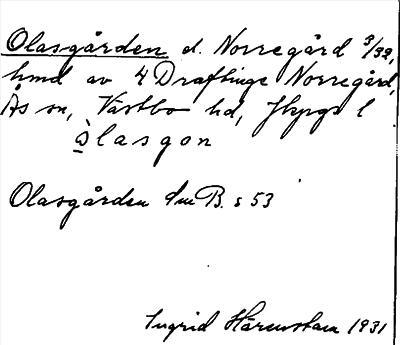 Olasgården el. Norregård 3/32,
hmd av 4 Draftinge Norregård,
Ås sn, Västbo hd, Jkpgs l
òlasgon
Olasgården Jm B. s 53
Ingrid Härenstam 1931